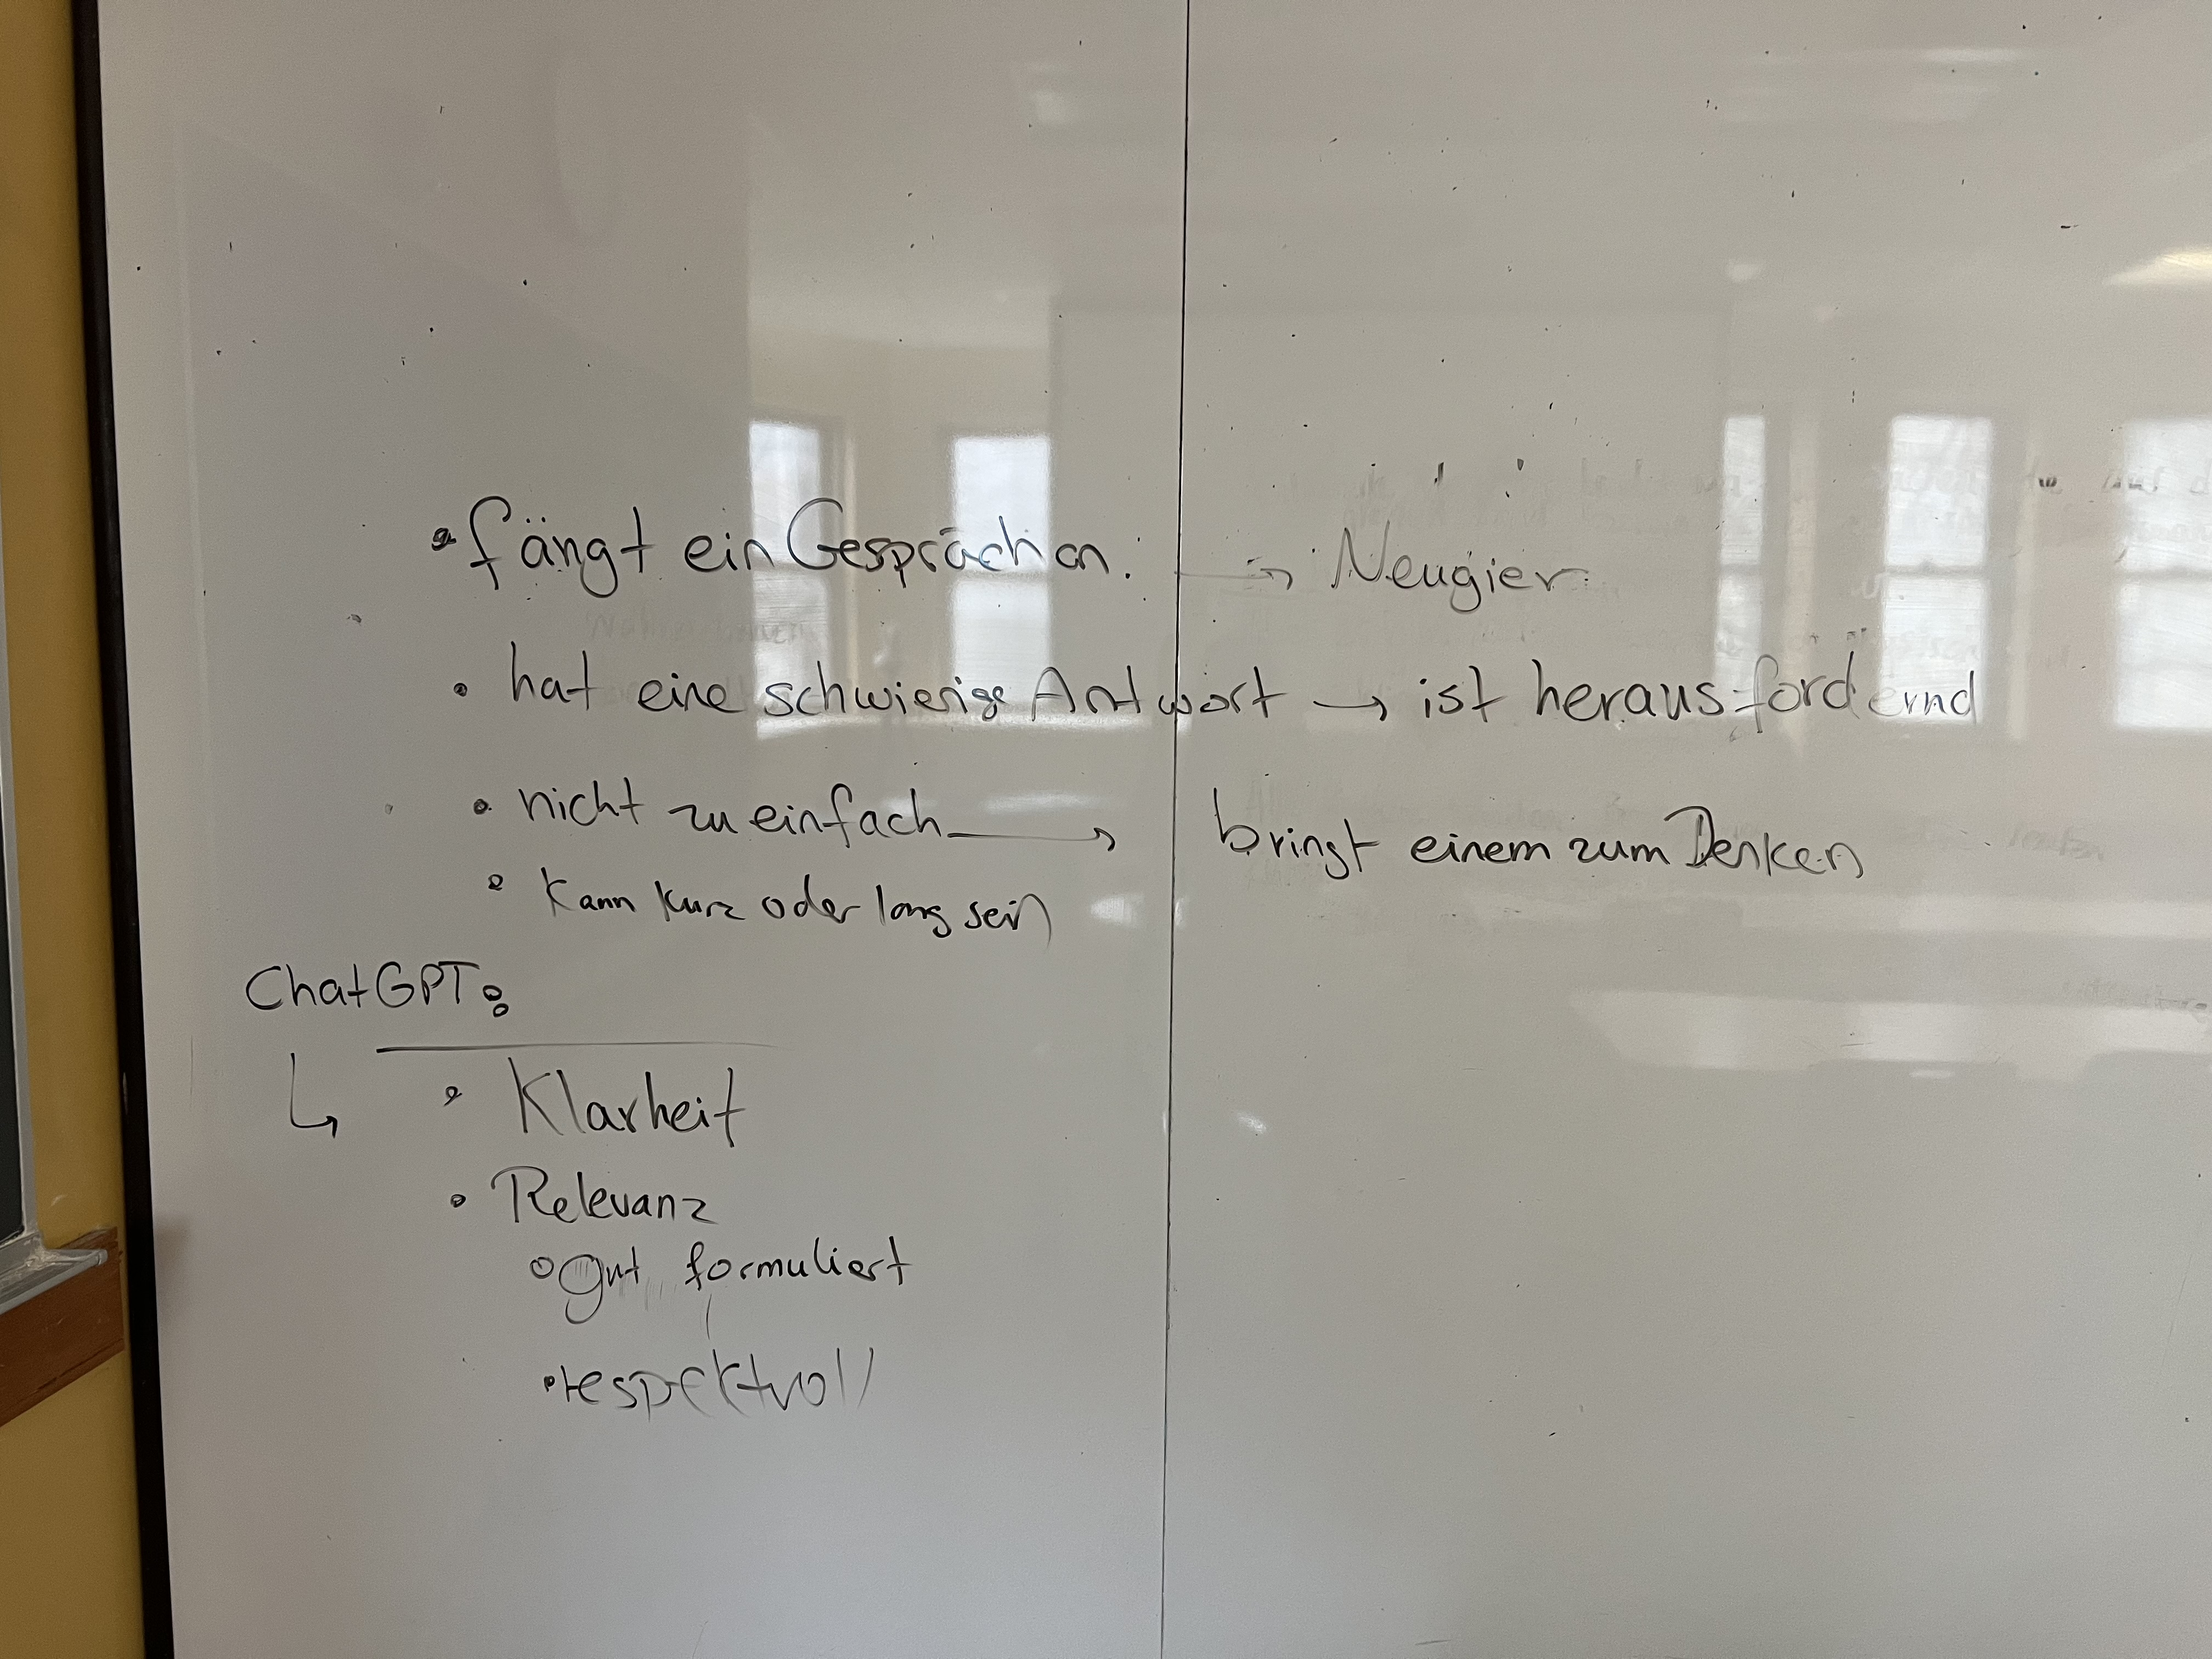 • fängt ein Gespräch an. → Neugier
• hat eine schwierige Antwort → ist herausfordernd
• nicht zu einfach → bringt einem zum Denken
• Kann kurz oder lang sein
ChatGPT:
↳ • Klarheit
• Relevanz
○ gut formuliert
• respektvoll